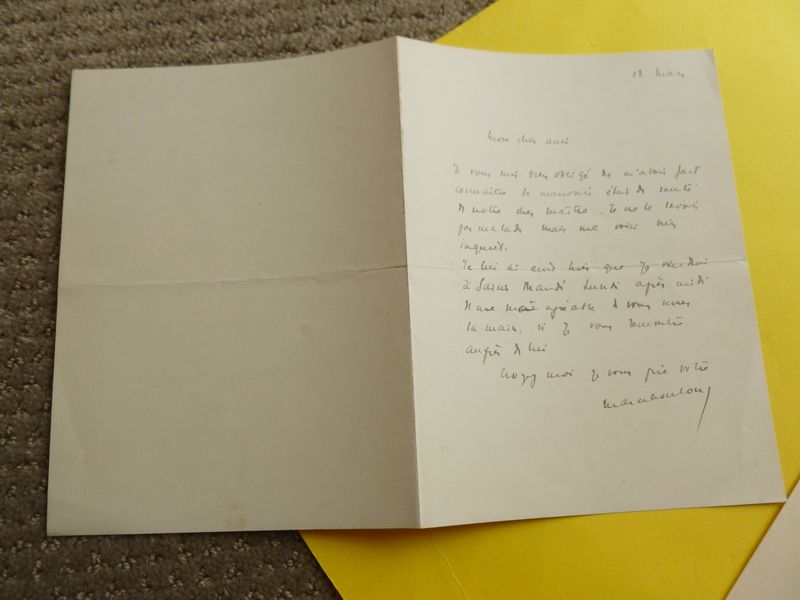 12 Mars
Mon cher ami
Je vous suis bien obligé de m'avoir fait
connaître le mauvais état de santé
de notre cher maître. Je ne le savais
pas malade mais me voici très
inquiet.
Je lui ai écrit hier que je viendrai
à Saint Mandé Lundi après midi
Il me sera agréable de vous serrer
la main, si je vous rencontre
auprès de lui
Croyez moi je vous prie votre